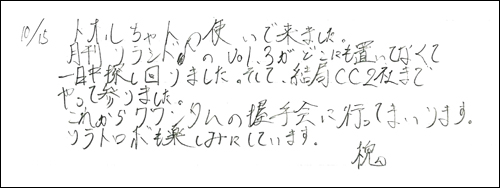 10/15 トオルちゃんの使いで来ました。
月刊ソラシドのvol.3がどこにも置いてなくて
一日中探し回りました。そして、結局CC2社まで
やって参りました。
これからワランタムの握手会に行ってまいります。
ソラトロボも楽しみにしています。